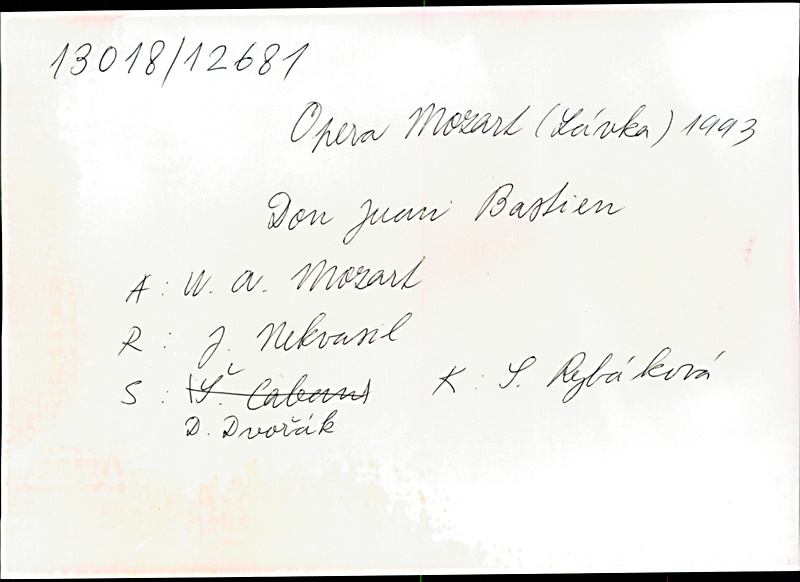 13018/12681
Opera Mozart (Lávka) 1993
Don Juan Bastien
A: W. A. Mozart
R: J. Nekvasil
S: Š. Caban K: S. Rybáková
D. Dvořák